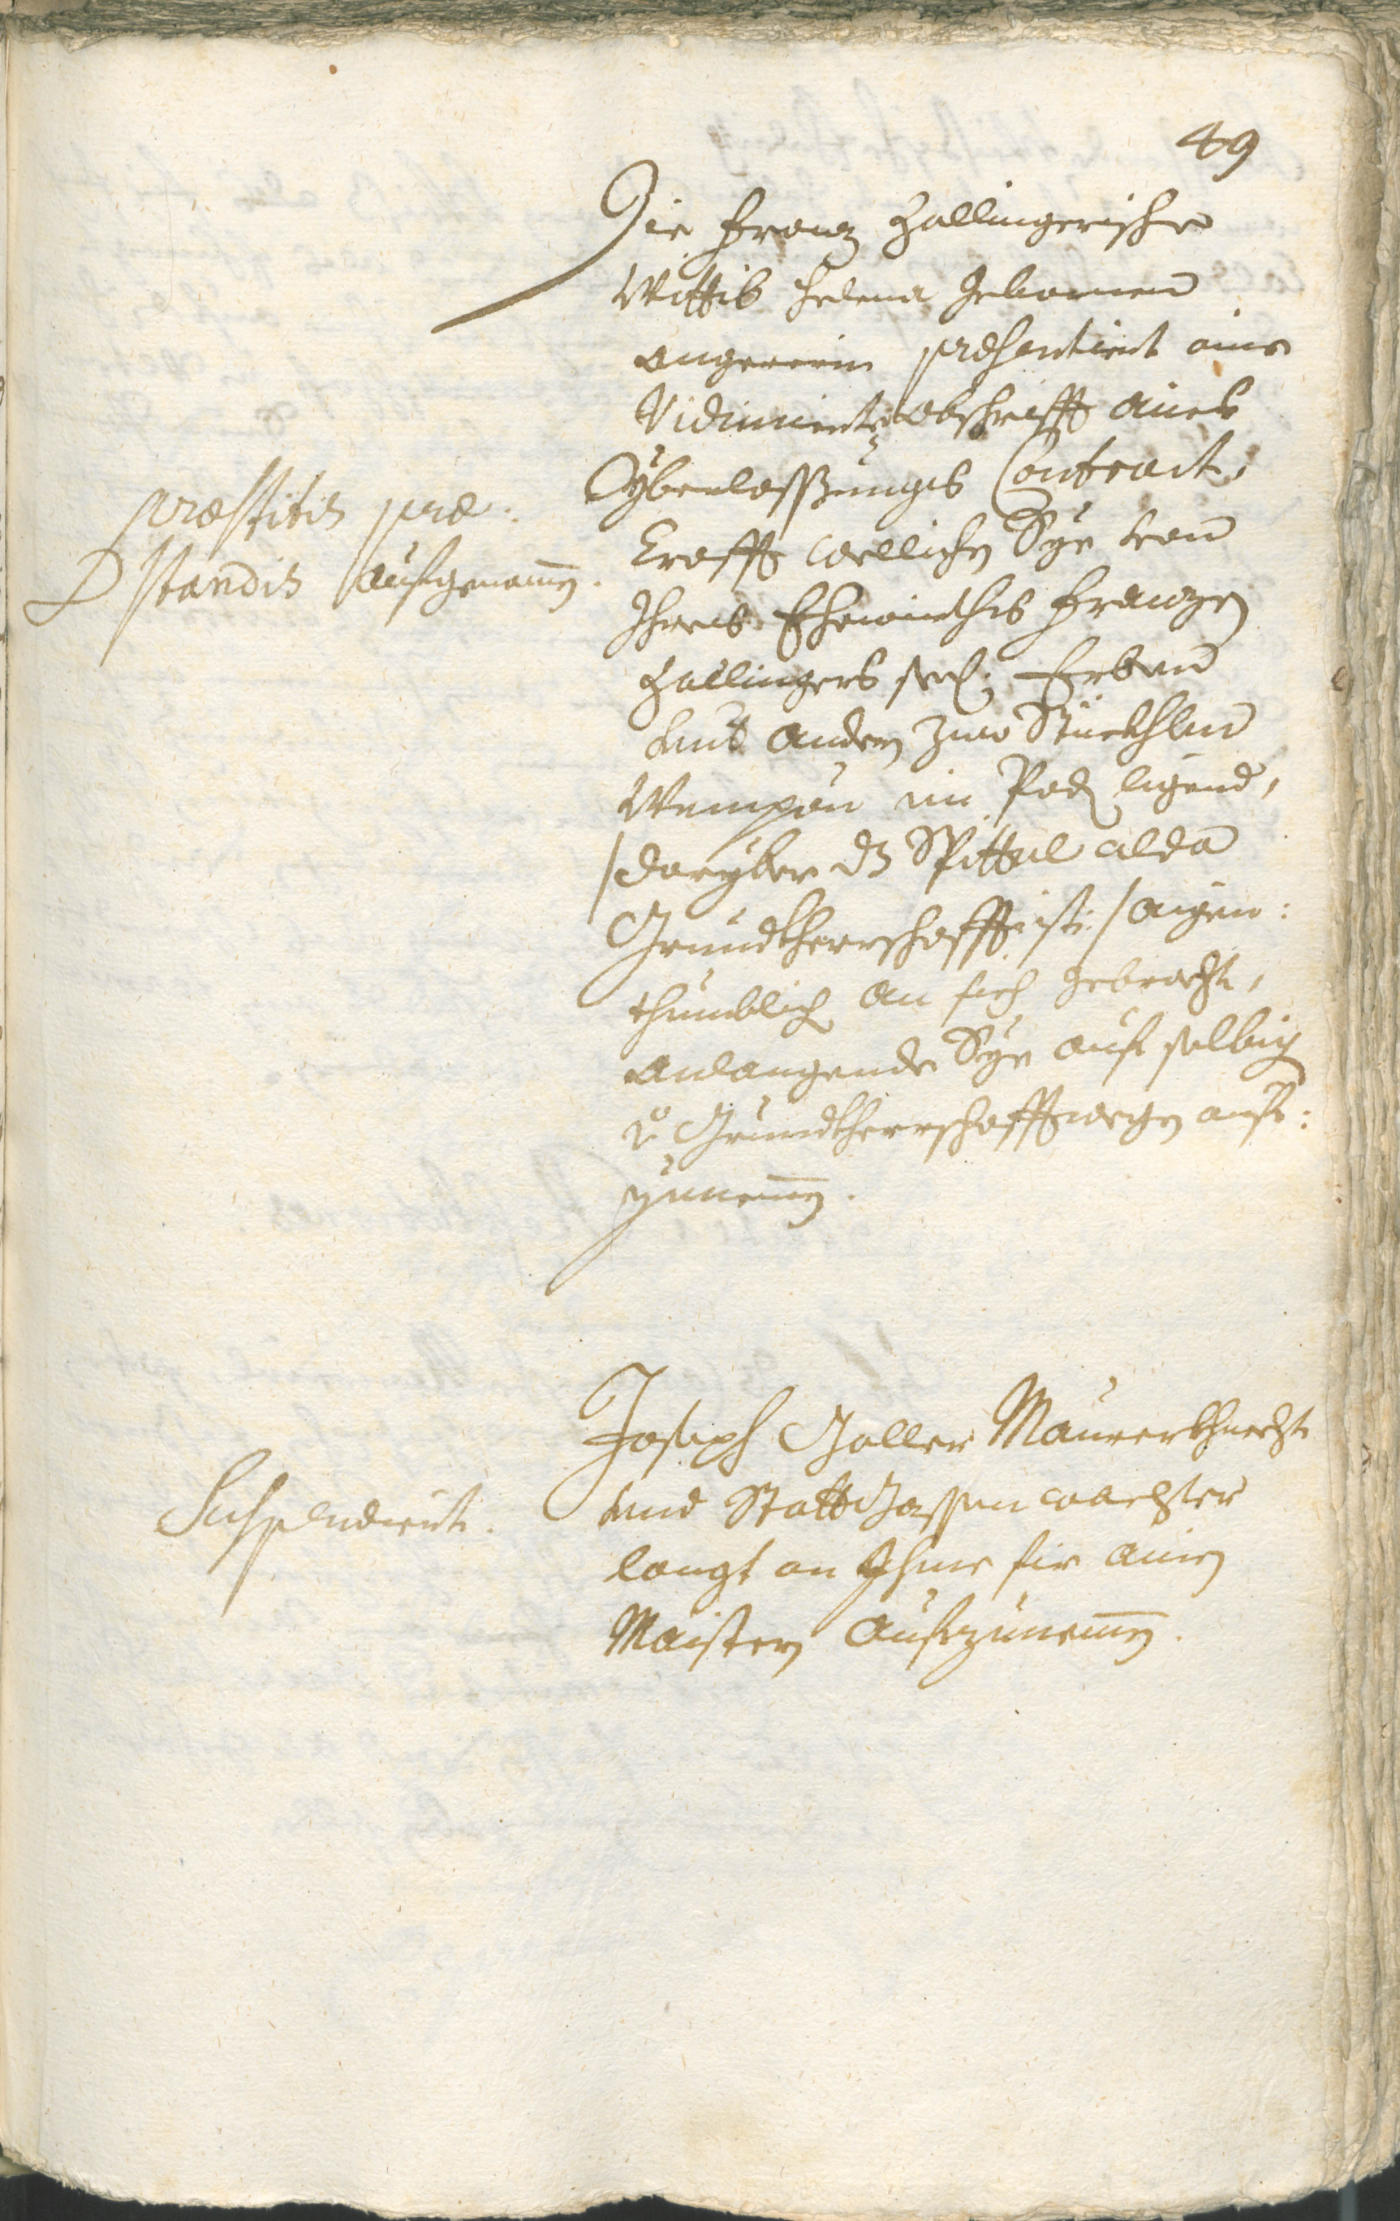 49
Die Franz Zallingerische
Wittib Helena geborne
angererin præsentiert aine
Vidimierte abschrifft aines
Yberlassungs Contract,
Crafft welliches Sye von
Ihres Ehewirths Franzen
Zallingers seel: Erben
und andern zwo Stückhlen
Weinpau im Pod ligend,
/daryber dz Spittal alda
Grundtherrschafft ist:/ aigen:
thumblich an sich gebracht,
anlangende Sye auf selbig
Grundtherrschafft wegen auf:
zunemen.
præstitis præ:
standis aufgenomen.
Joseph Galler Maurerkhnecht
und Statt Gassen wachter
langt an Ihme fir ainen
Maistern aufzunemen.
Suspendiert.